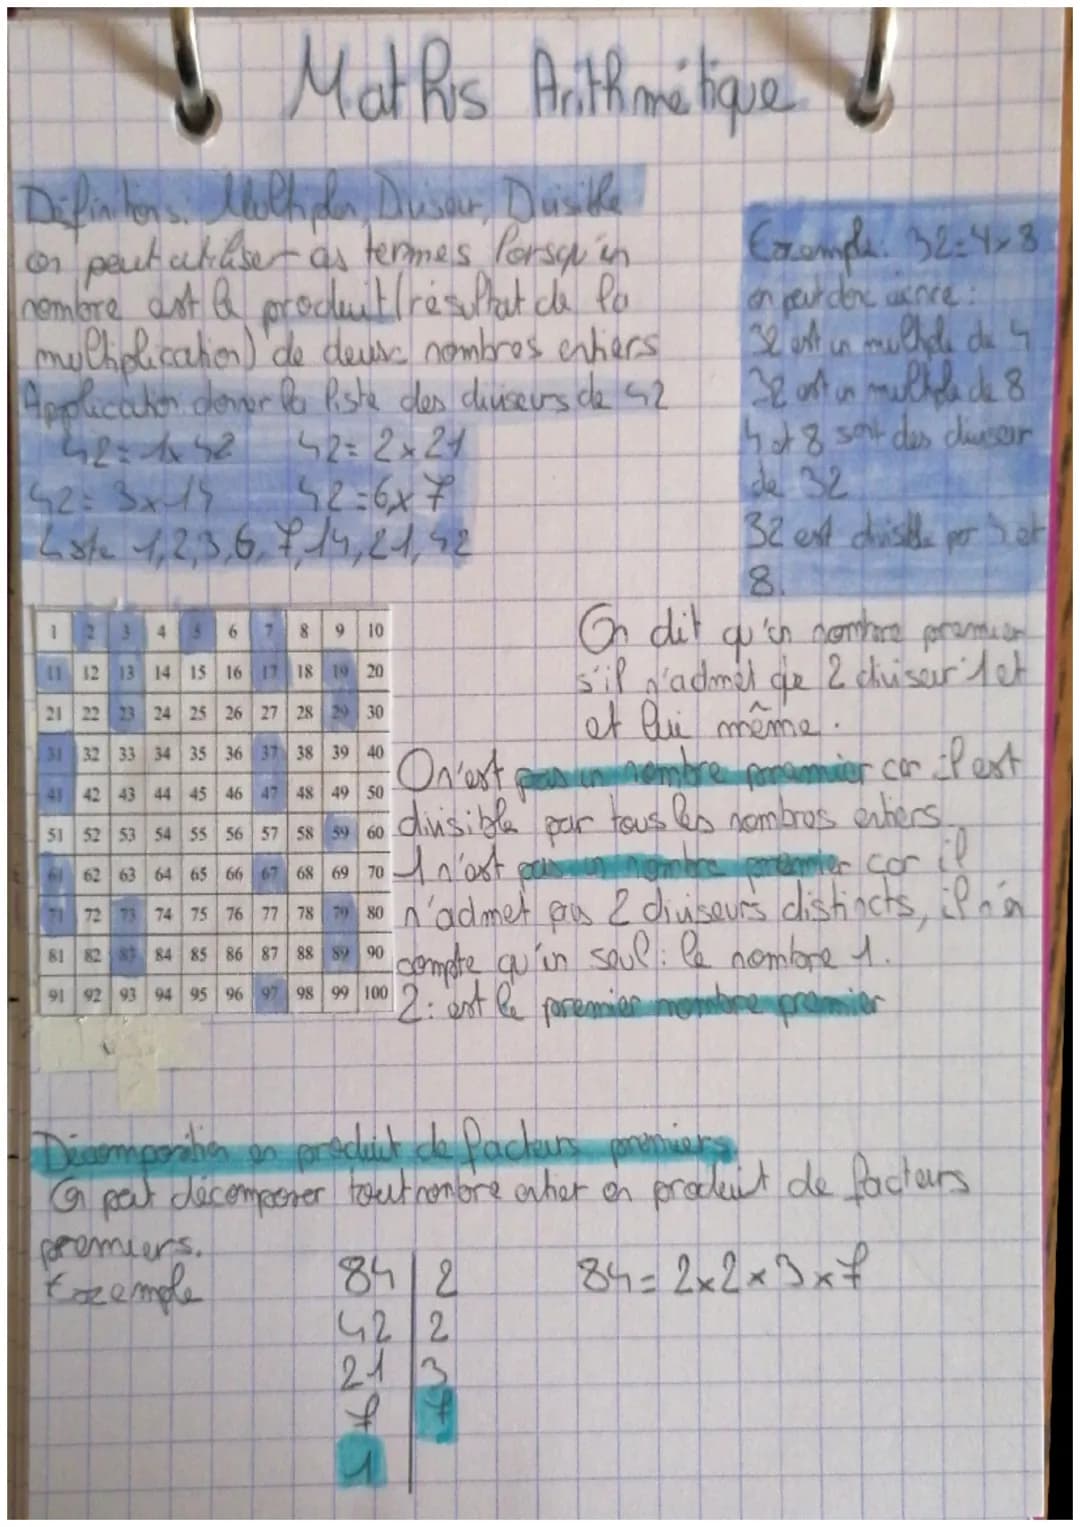 Maths Arithmétique
Définitions: Multiples, Diviseur, Divisible
on peut utiliser ces termes lorsqu'un
nombre est le produit (résultat de la
multiplication) de deux nombres entiers
Application donner la liste des diviseurs de 42
42 = 1x 42 42 = 2 x 21
42 = 3 x 14 42 = 6 x 7
Liste 1, 2, 3, 6, 7, 14, 21, 42
Exemple: 32 = 4 x 8
on peut donc écrire :
32 est un multiple de 4
32 est un multiple de 8
4 et 8 sont des diviseur
de 32
32 est divisible par 4 et
8.
1 2 3 4 5 6 7 8 9 10
11 12 13 14 15 16 17 18 19 20
21 22 23 24 25 26 27 28 29 30
31 32 33 34 35 36 37 38 39 40
41 42 43 44 45 46 47 48 49 50
51 52 53 54 55 56 57 58 59 60
61 62 63 64 65 66 67 68 69 70
71 72 73 74 75 76 77 78 79 80
81 82 83 84 85 86 87 88 89 90
91 92 93 94 95 96 97 98 99 100
On dit qu'un nombre premier
s'il n'admet que 2 diviseur 1 et
et lui même.
0 n'est pas un nombre premier car il est
divisible par tous les nombres entiers
1 n'est pas un nombre premier car il
n'admet pas 2 diviseurs distincts, il n'en
compte qu'un seul : le nombre 1.
2: est le premier nombre premier
Décomposition en produit de facteurs premiers.
On peut décomposer tout nombre entier en produit de facteurs
premiers.
Exemple
84 2 84 = 2 x 2 x 3 x 7
42 2
21 3
7 7
1